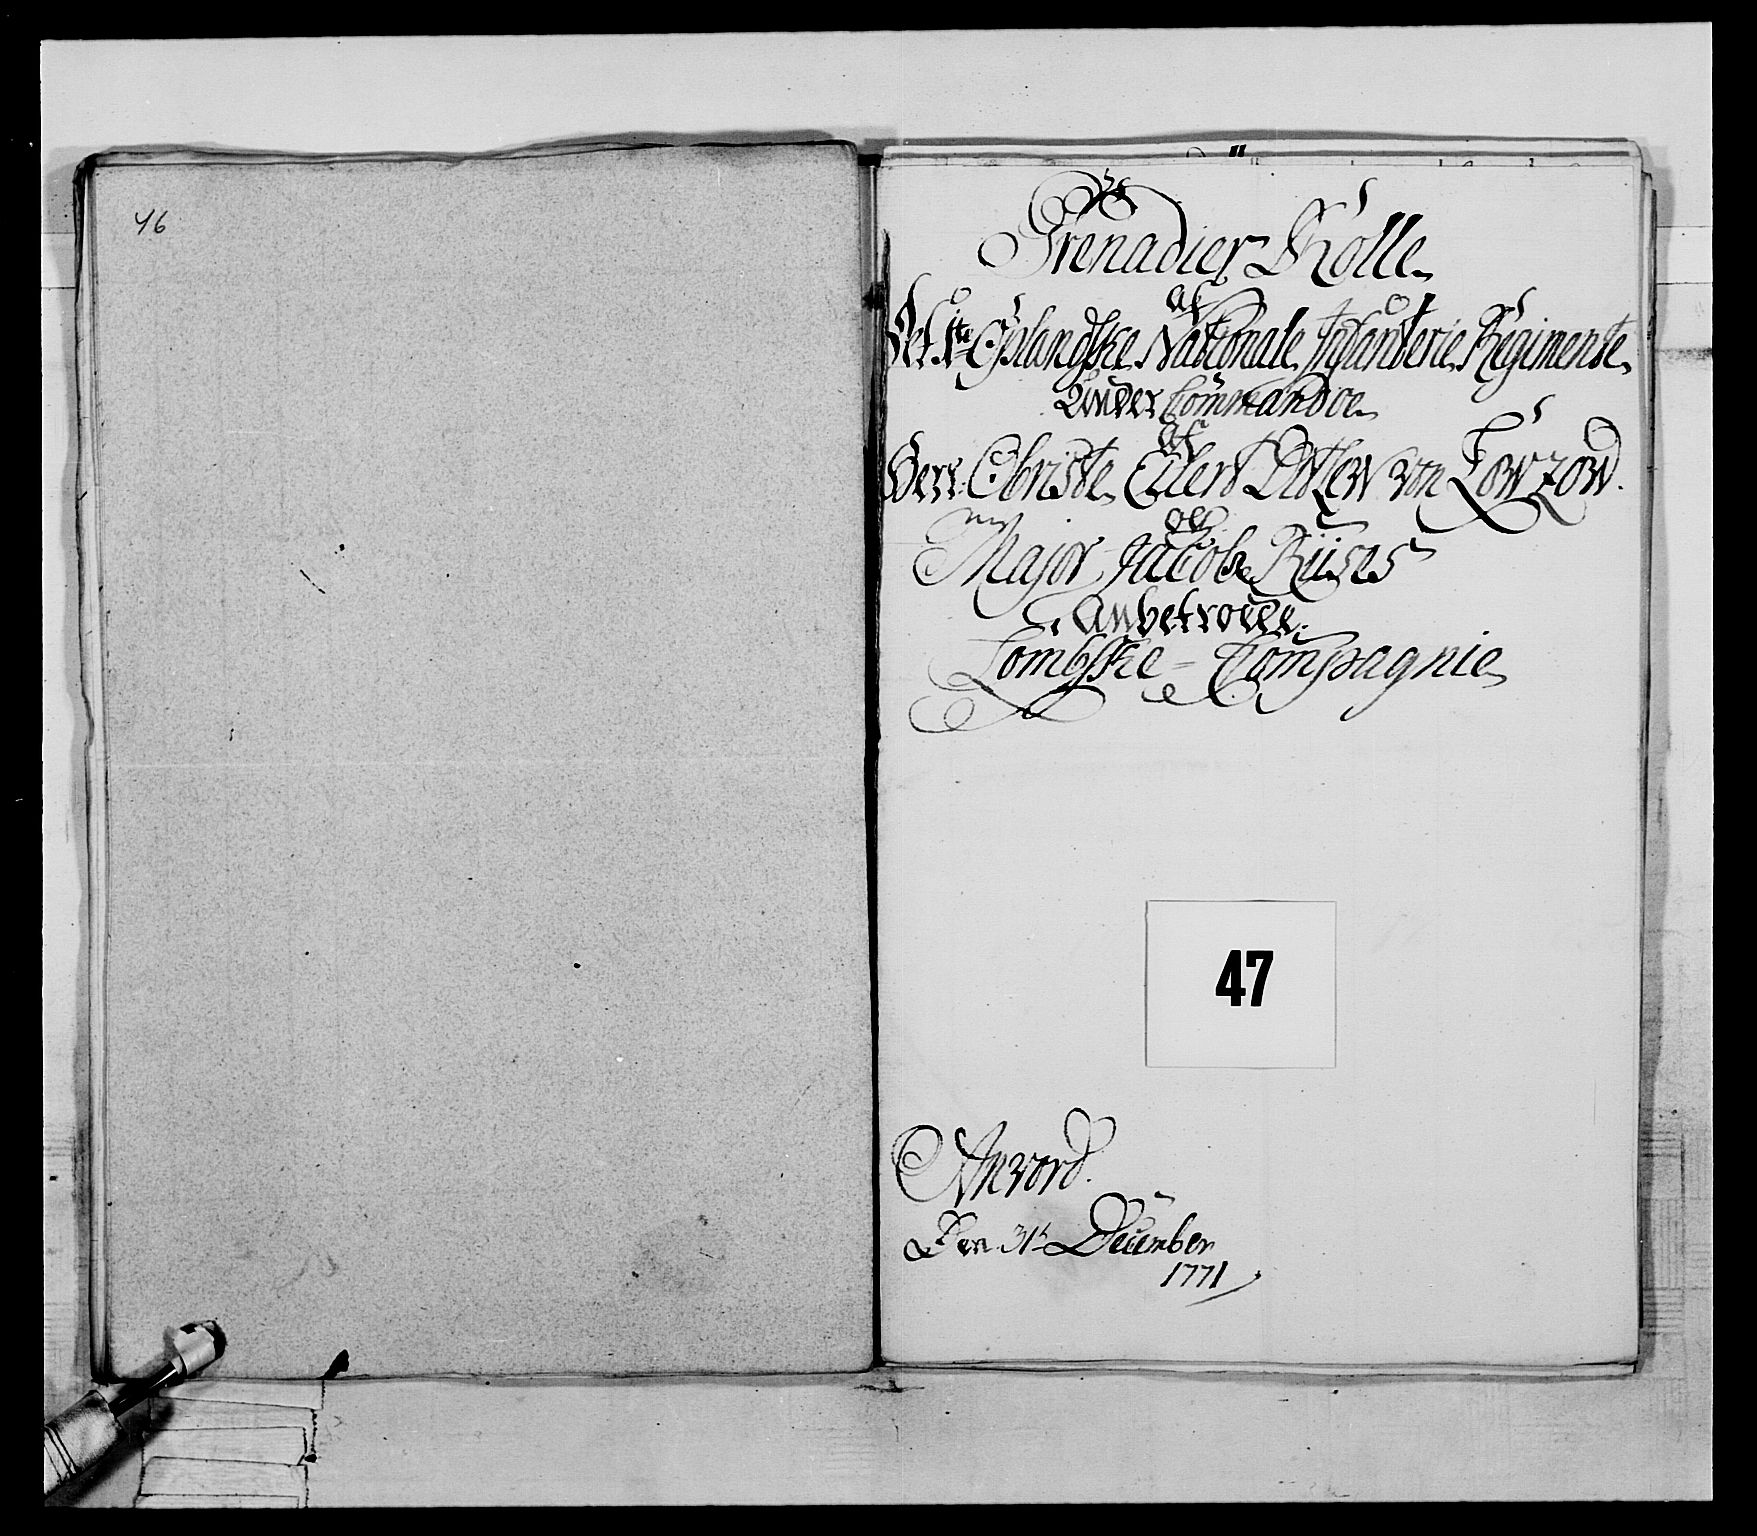 46
Grenadier Rolle
af
Det 1te Oplandske Nationale Infanterie Regimente
Under Commandoe
af
Herr Obriste Eilert Ditlew von Lowzow.
og
Major Jacob Riises
Anbetroede
Lomske - Compagnie
47
Anvord.
Den 31te December
1771